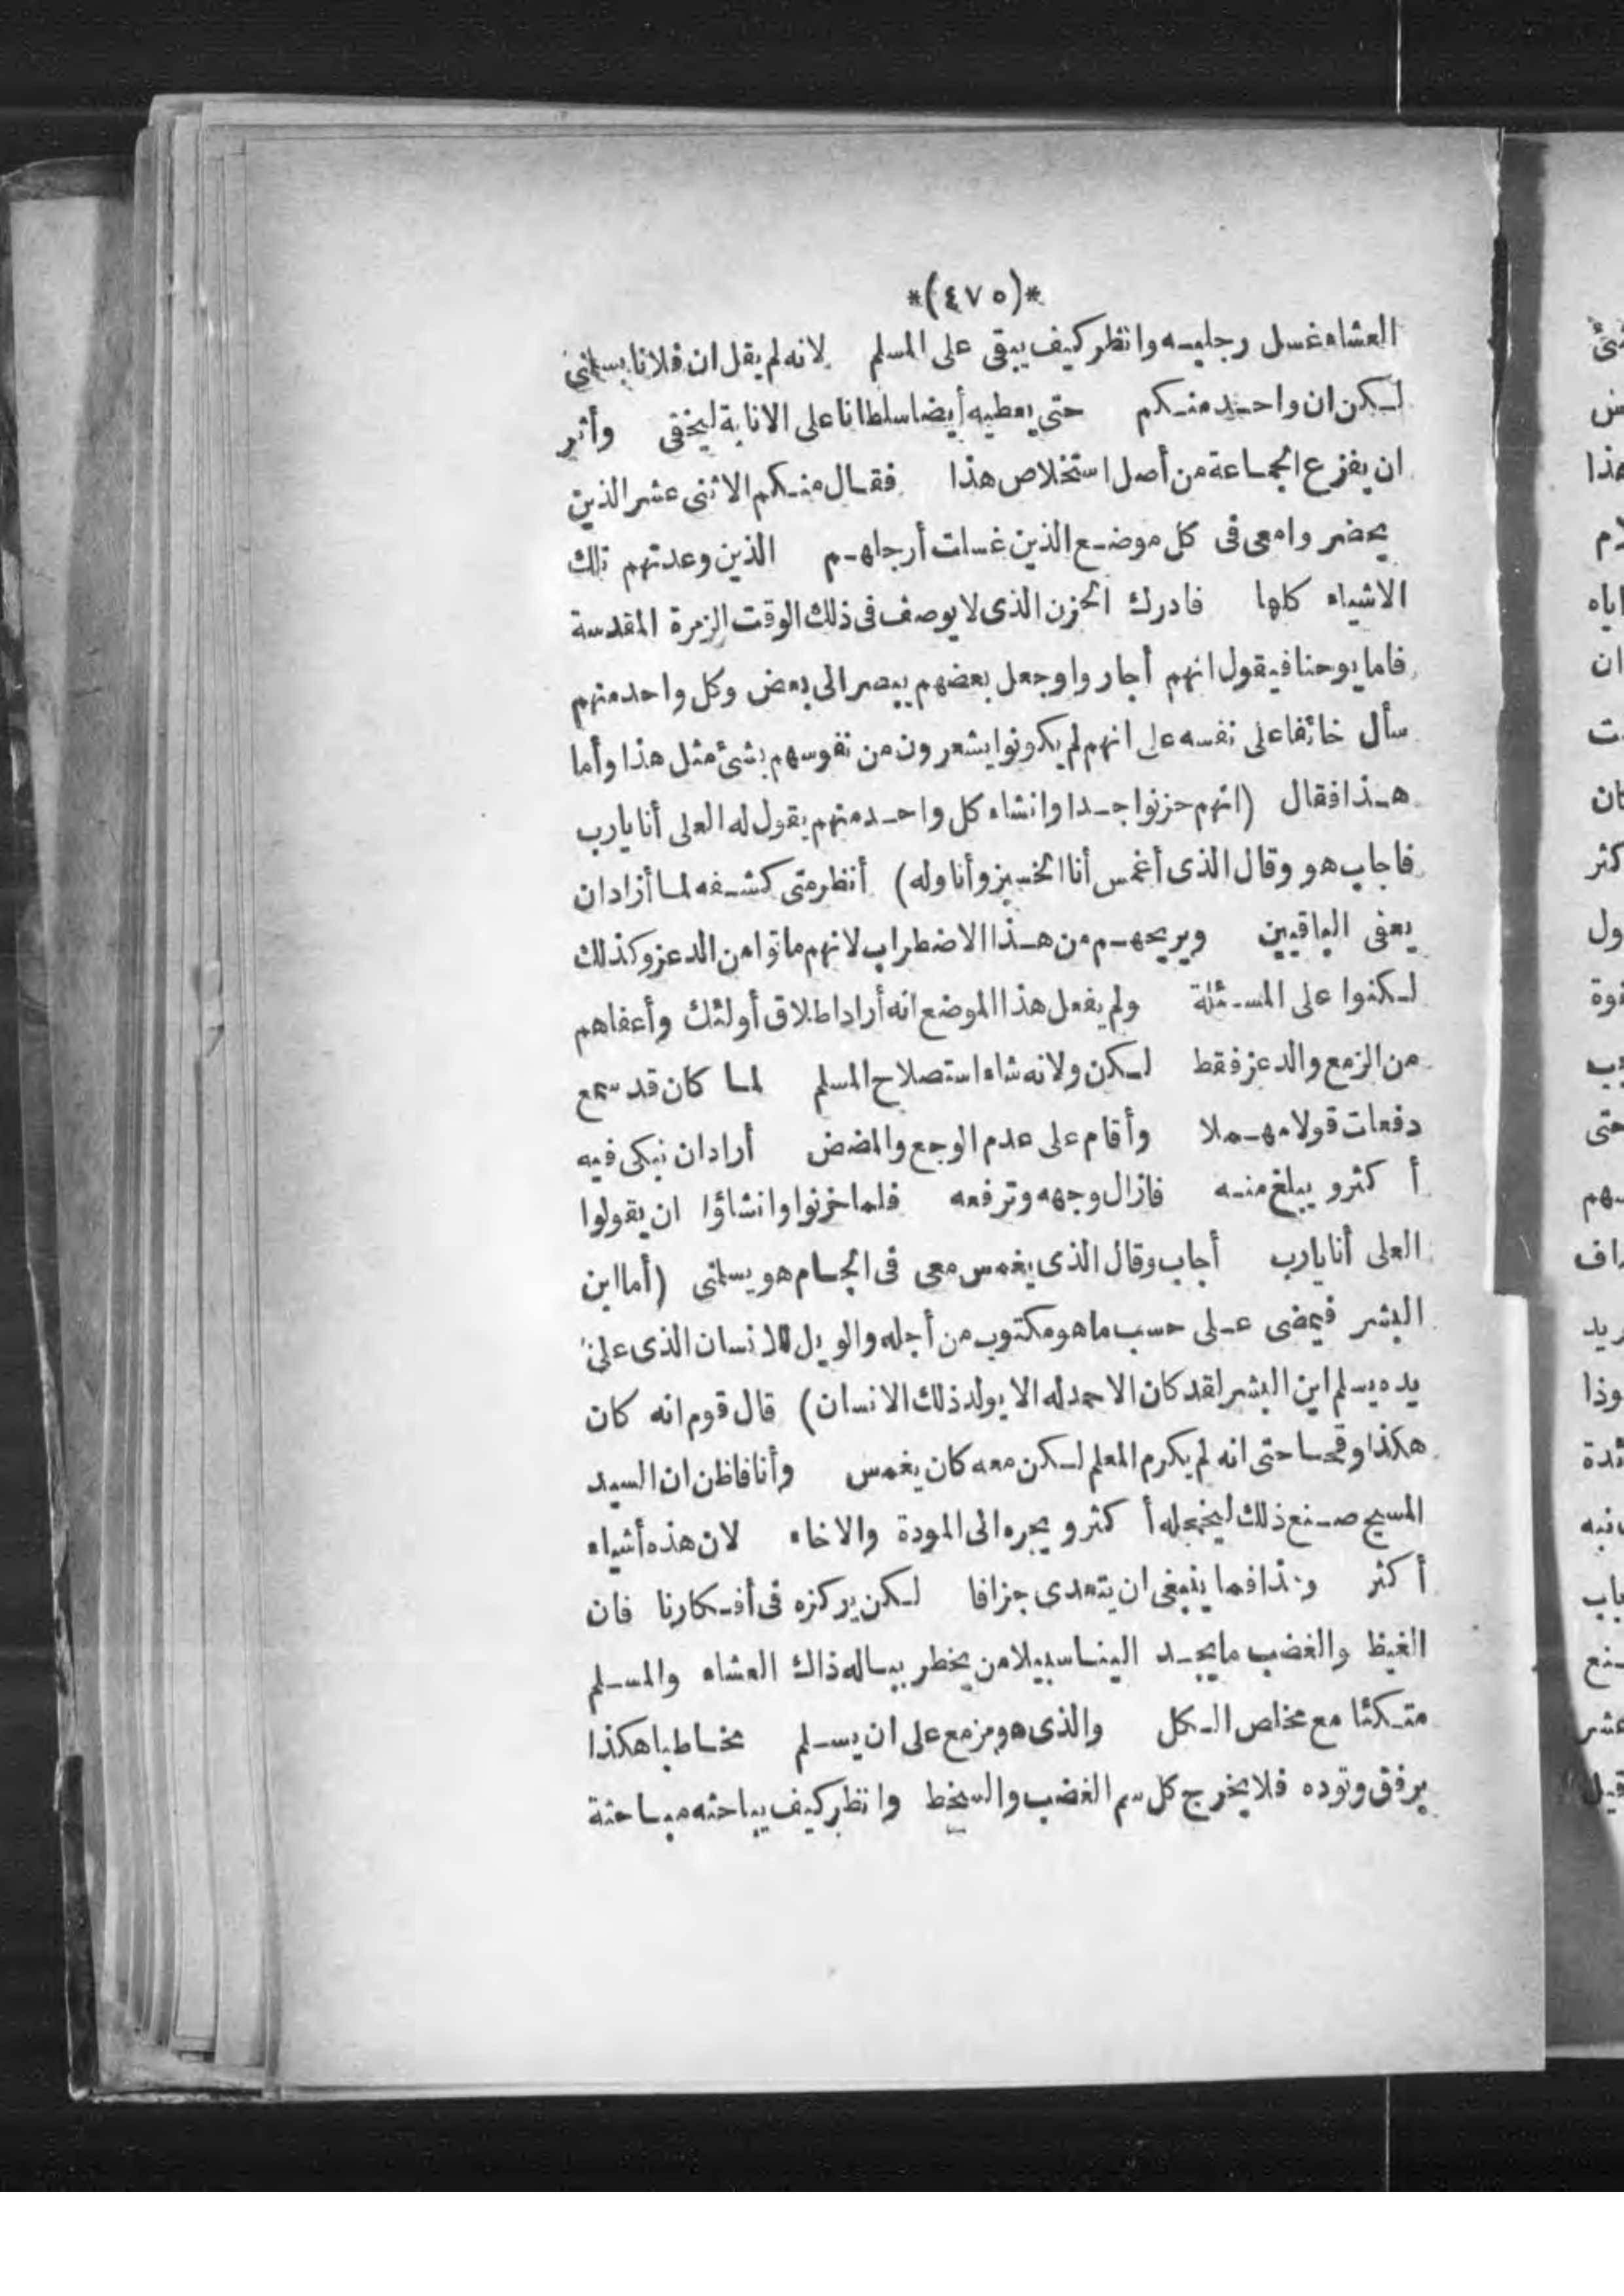 *(٤٧٥)*
العشاء غسل رجليه وانظر كيف يبقى على المسلم لانه لم يقل ان فلانا يسلمنى
لكن ان واحد منكم حتى يعطيه أيضا سلطانا على الانابة ليخفى وأثر
ان يفزع الجماعة من أصل استخلاص هذا فقال منكم الاثنى عشر الذين
يحضروا معى فى كل موضع الذين غسلت أرجلهم الذين وعدتهم تلك
الاشياء كلها فادرك الحزن الذى لا يوصف فى ذلك الوقت الزمرة المقدسة
فاما يوحنا فيقول انهم أحاروا وجعل بعضهم يبصر الى بعض وكل واحد منهم
سأل خائفا على نفسه على انهم لم يكونوا يشعرون من نفوسهم بشئ مثل هذا وأما
هذا فقال (انهم حزنوا جدا وانشاء كل واحد منهم يقول له العلى أنا يارب
فاجاب هو وقال الذى أغمس أنا الخبز وأناوله) أنظر متى كشفه لما أزاد ان
يعفى الباقيين ويريحهم من هذا الاضطراب لانهم ماتوا من الدعز وكذلك
لكنوا على المسئلة ولم يفعل هذا الموضع انه أراد اطلاق أولئك وأعفاهم
من الزمع والدعز فقط لكن ولانه شاء استصلاح المسلم لما كان قد سمع
دفعات قولا مهملا وأقام على عدم الوجع والمضض أراد ان نبكى فيه
أكثر ويبلغ منه فازال وجهه وترفعه فلما خزنوا وانشاؤا ان يقولوا
العلى أنا يارب أجاب وقال الذى يغمس معى فى الجام هو يسلمنى (أما ابن
البشر فيمضى على حسب ما هو مكتوب من أجله والويل للانسان الذى على
يده يسلم ابن البشر لقد كان الاحمد له الا يولد ذلك الانسان) قال قوم انه كان
هكذا وقحا حتى انه لم يكرم المعلم لكن معه كان يغمس وأنا فاظن ان السيد
المسيح صنع ذلك ليخجله أكثر ويجره الى المودة والاخاء لان هذه أشياء
أكثر وهذا فما ينبغى ان يتعدى جزافا لكن يركزه فى أفكارنا فان
الغيظ والغضب ما يجد الينا سبيلا من يخطر بباله ذاك العشاء والمسلم
متكئا مع مخلص الكل والذى هو مزمع على ان يسلم مخاطبا هكذا
برفق وتوده فلا يخرج كل سم الغضب والسخط وانظر كيف يباحثه مباحثة